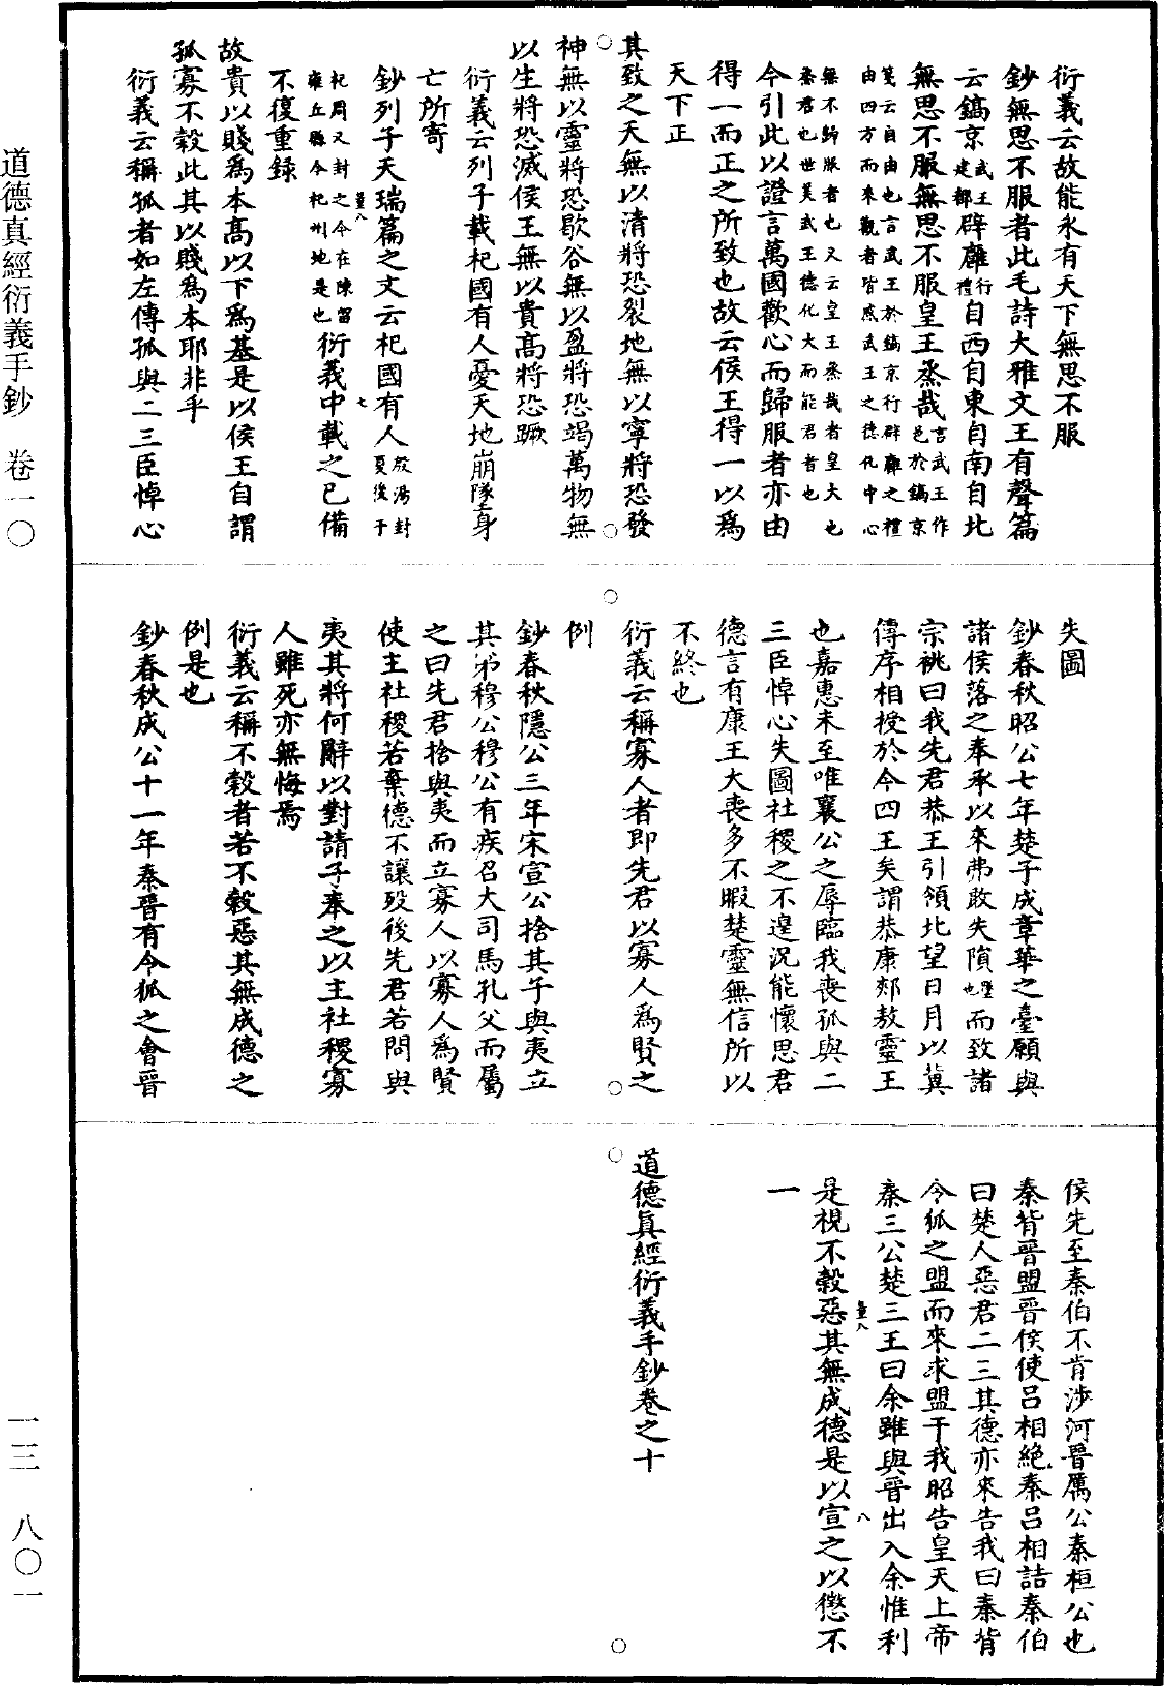 衍義云故能永有天下無思不服
鈔無思不服者此毛詩大雅文王有聲篇
云鎬京武王建都辟廱行禮自西自東自南自北
無思不服無思不服皇王烝哉言武王作邑於鎬京
箋云自由也言武王於鎬京行辟廱之禮
由四方而來觀者皆感武王之德化中心
無不歸服者也又云皇王烝哉者皇大也
烝君也世美武王德化大而能君者也
今引此以證言萬國歡心而歸服者亦由
得一而正之所致也故云侯王得一以爲
天下正
其致之天無以清將恐裂地無以寧將恐發
神無以靈將恐歇谷無以盈將恐竭萬物無
以生將恐滅侯王無以貴高將恐蹶
衍義云列子載杞國有人憂天地崩墜身
亡所寄
鈔列子天瑞篇之文云杞國有人殷湯封夏後于
杞周又封之今在陳留
雍丘縣今杞州地是也衍義中載之已備
不復重録
故貴以賤爲本高以下爲基是以侯王自謂
孤寡不穀此其以賤爲本耶非乎
衍義云稱孤者如左傳孤與二三臣悼心
失圖
鈔春秋昭公七年楚子成章華之臺願與
諸侯落之奉承以來弗敢失隕墜也而致諸
宗祧曰我先君恭王引領北望日月以冀
傳序相授於今四王矣謂恭康郟敖靈王
也嘉惠未至唯襄公之辱臨我喪孤與二
三臣悼心失圖社稷之不遑況能懷思君
德言有康王大喪多不暇楚靈無信所以
不終也
衍義云稱寡人者即先君以寡人爲賢之
例
鈔春秋隱公三年宋宣公捨其子與夷立
其弟穆公穆公有疾召大司馬孔父而屬
之曰先君捨與夷而立寡人以寡人爲賢
使主社稷若棄德不讓殁後先君若問與
夷其將何辭以對請子奉之以主社稷寡
人雖死亦無悔焉
衍義云稱不穀者若不穀惡其無成德之
例是也
鈔春秋成公十一年秦晉有令狐之會晉
侯先至秦伯不肯涉河晉厲公秦桓公也
秦背晉盟晉侯使吕相絶秦吕相詰秦伯
曰楚人惡君二三其德亦來告我曰秦背
令狐之盟而來求盟于我昭告皇天上帝
秦三公楚三王曰余雖與晉出入余惟利
是視不穀惡其無成德是以宣之以懲不
一
道德真經衍義手鈔卷之十
道德真經衍義手鈔 卷一〇
一三 八〇一